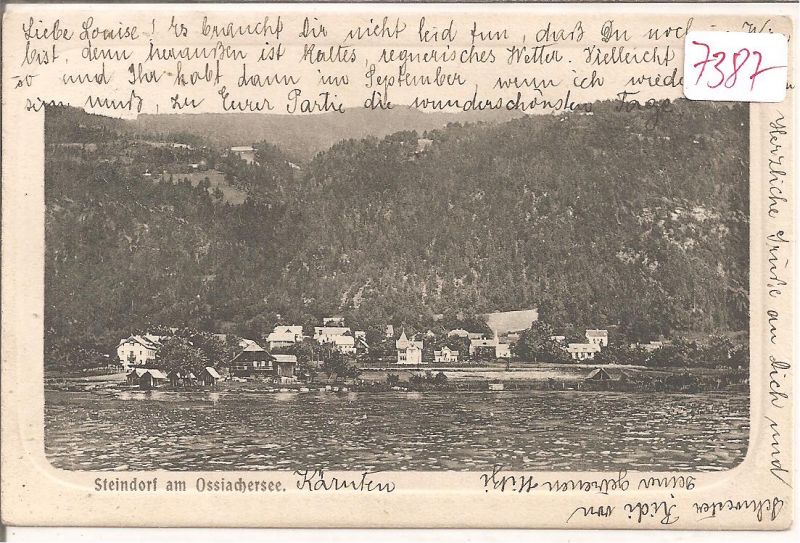 Liebe Louise! Es braucht Dir nicht leid tun, daß Du noch in
bist, denn heraußen ist kaltes regnerisches Wetter. Vielleicht
so und Ihr habt dann im September wenn ich wieder
sein muß, zu Eurer Partie die wunderschönsten Tage.
7387
Herzliche Grüße an Dich und
Schwester Ridi von
Deiner getreuen Mitzi
Steindorf am Ossiachersee. Kärnten